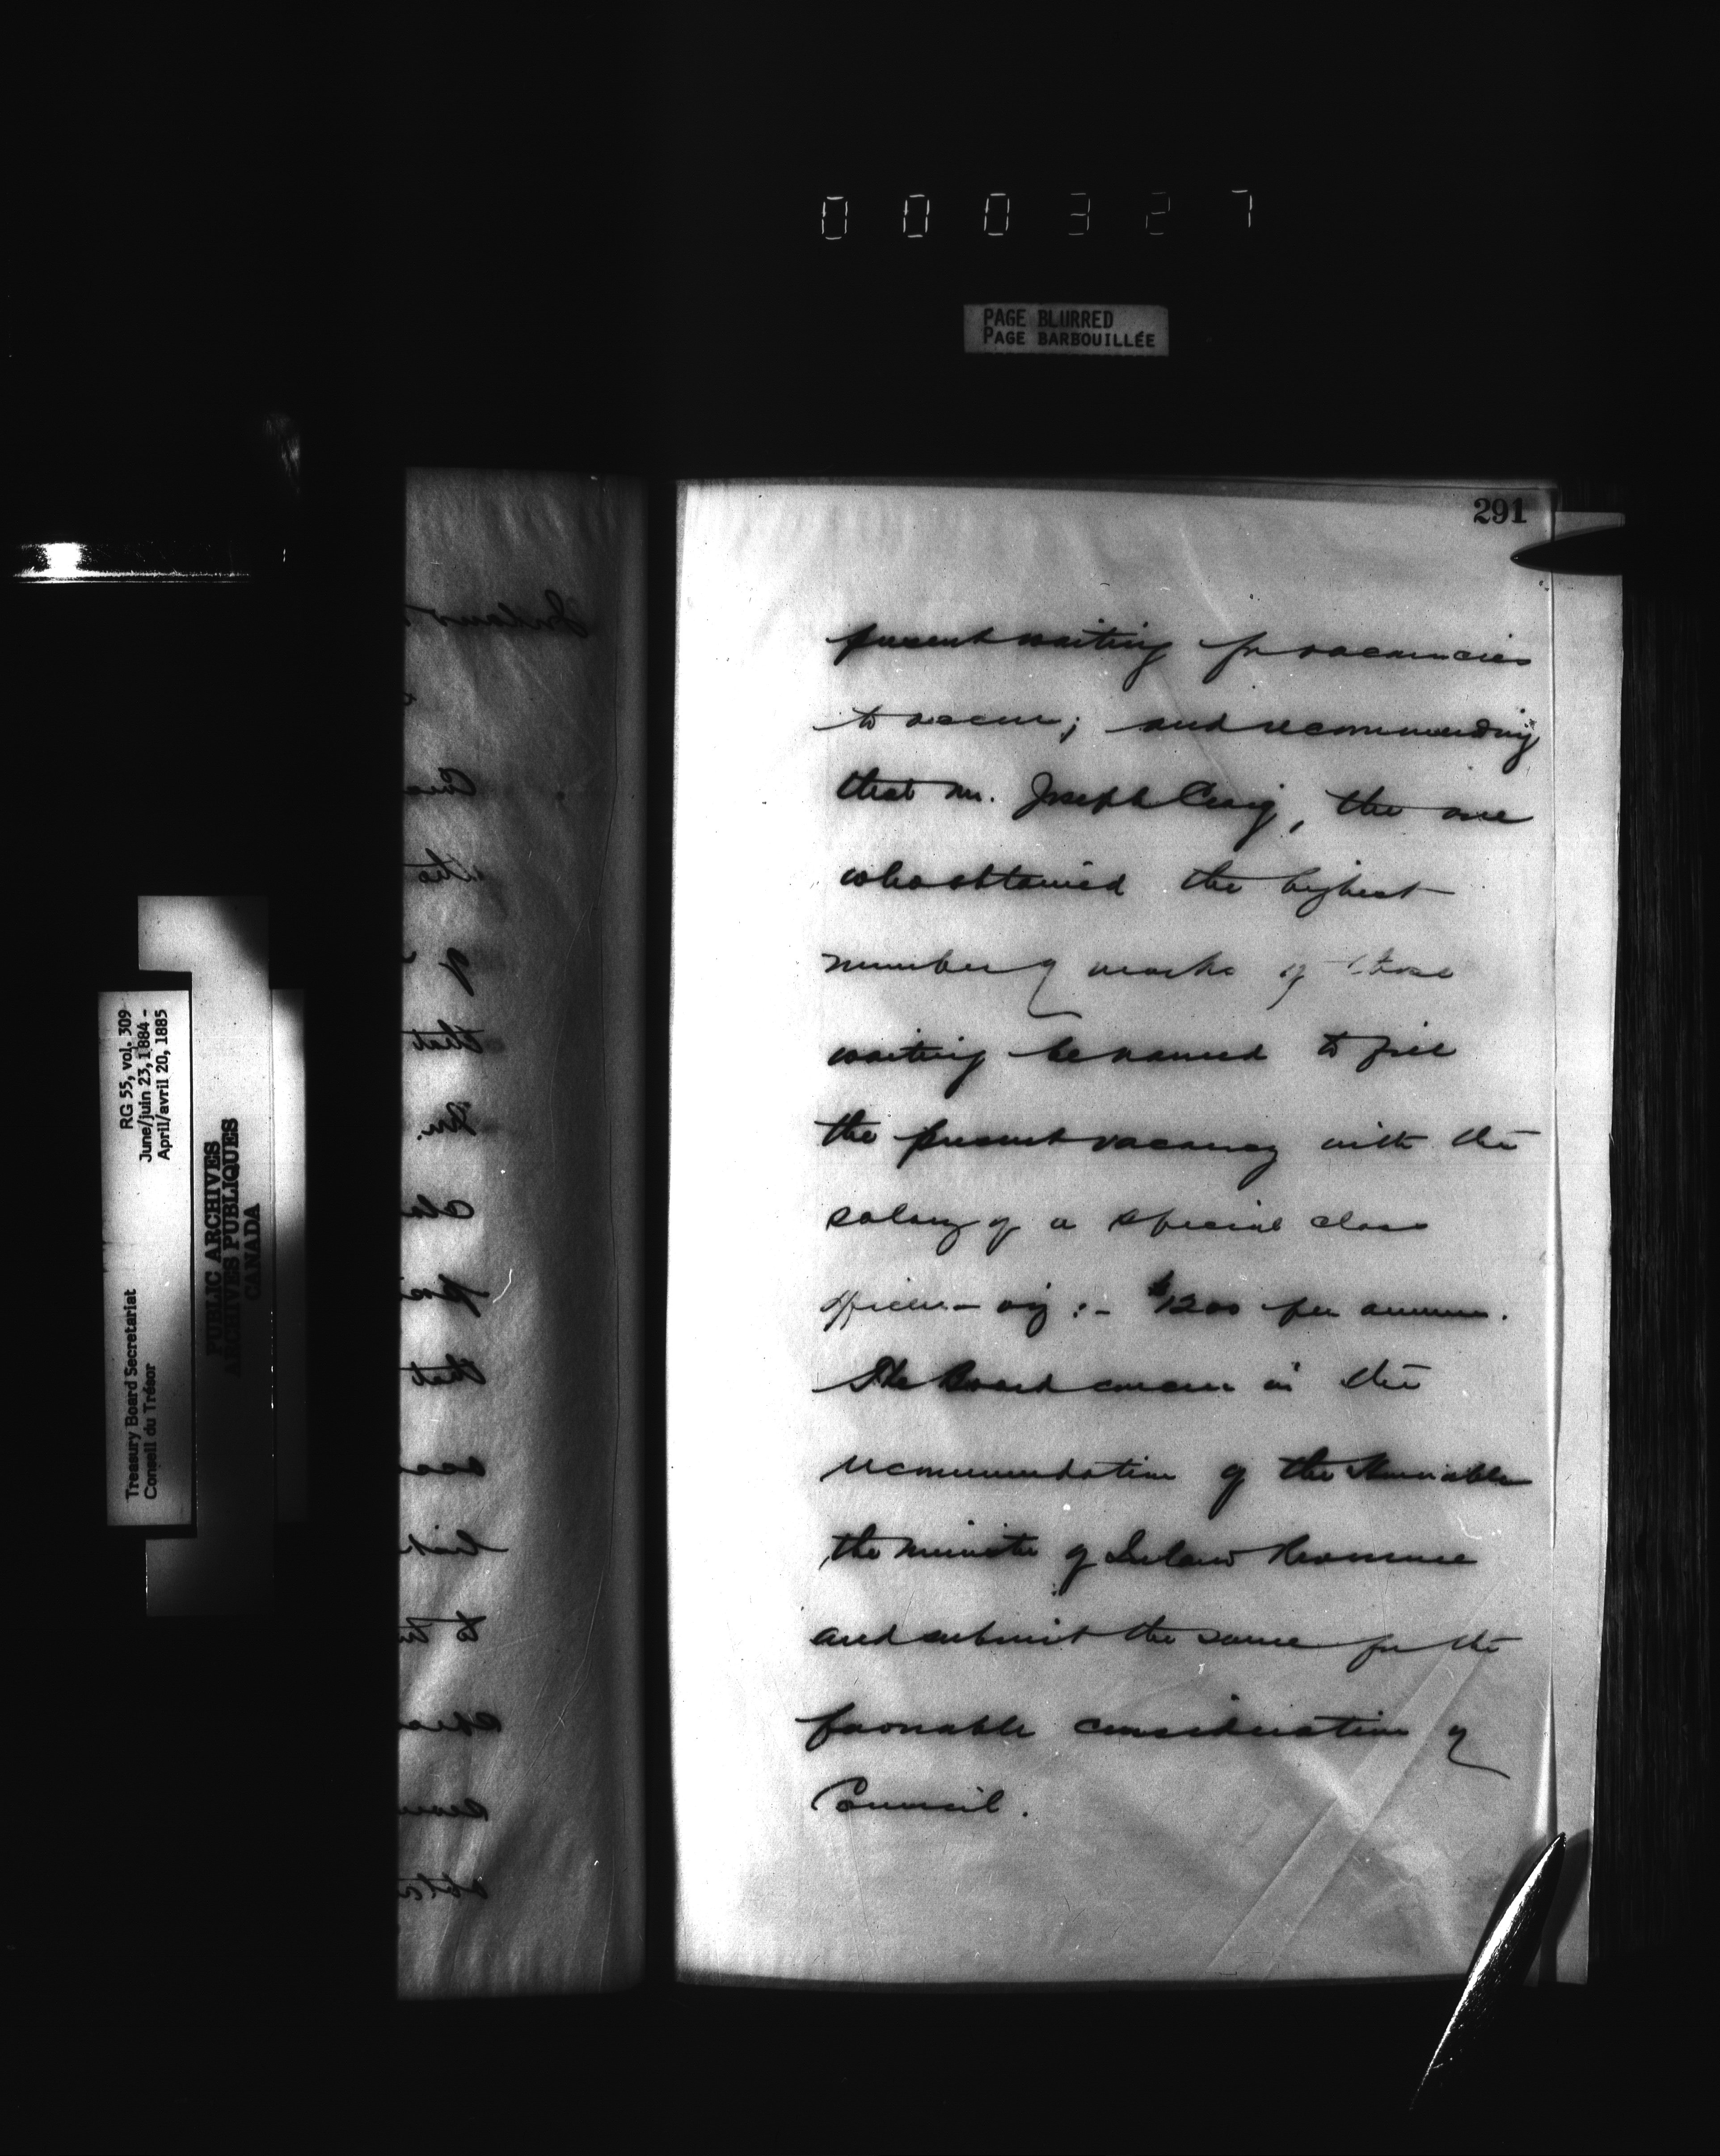 000327
PAGE BLURRED
PAGE BARBOUILLÉE
291
present waiting for vacancies
to occur; and recommending
that Mr. Joseph Craig, the one
who obtained the highest
number of marks of those
waiting be named to fill
the present vacancy with the
salary of a special class
officer – viz :– $1200 per annum.
The Board concur in the
recommendation of the Honorable
the Minister of Inland Revenue
and submit the same for the
favorable consideration of
Council.
Treasury Board Secretariat RG 55, vol. 309
Conseil du Trésor June/juin 23, 1884 -
April/avril 20, 1885
PUBLIC ARCHIVES
ARCHIVES PUBLIQUES
CANADA